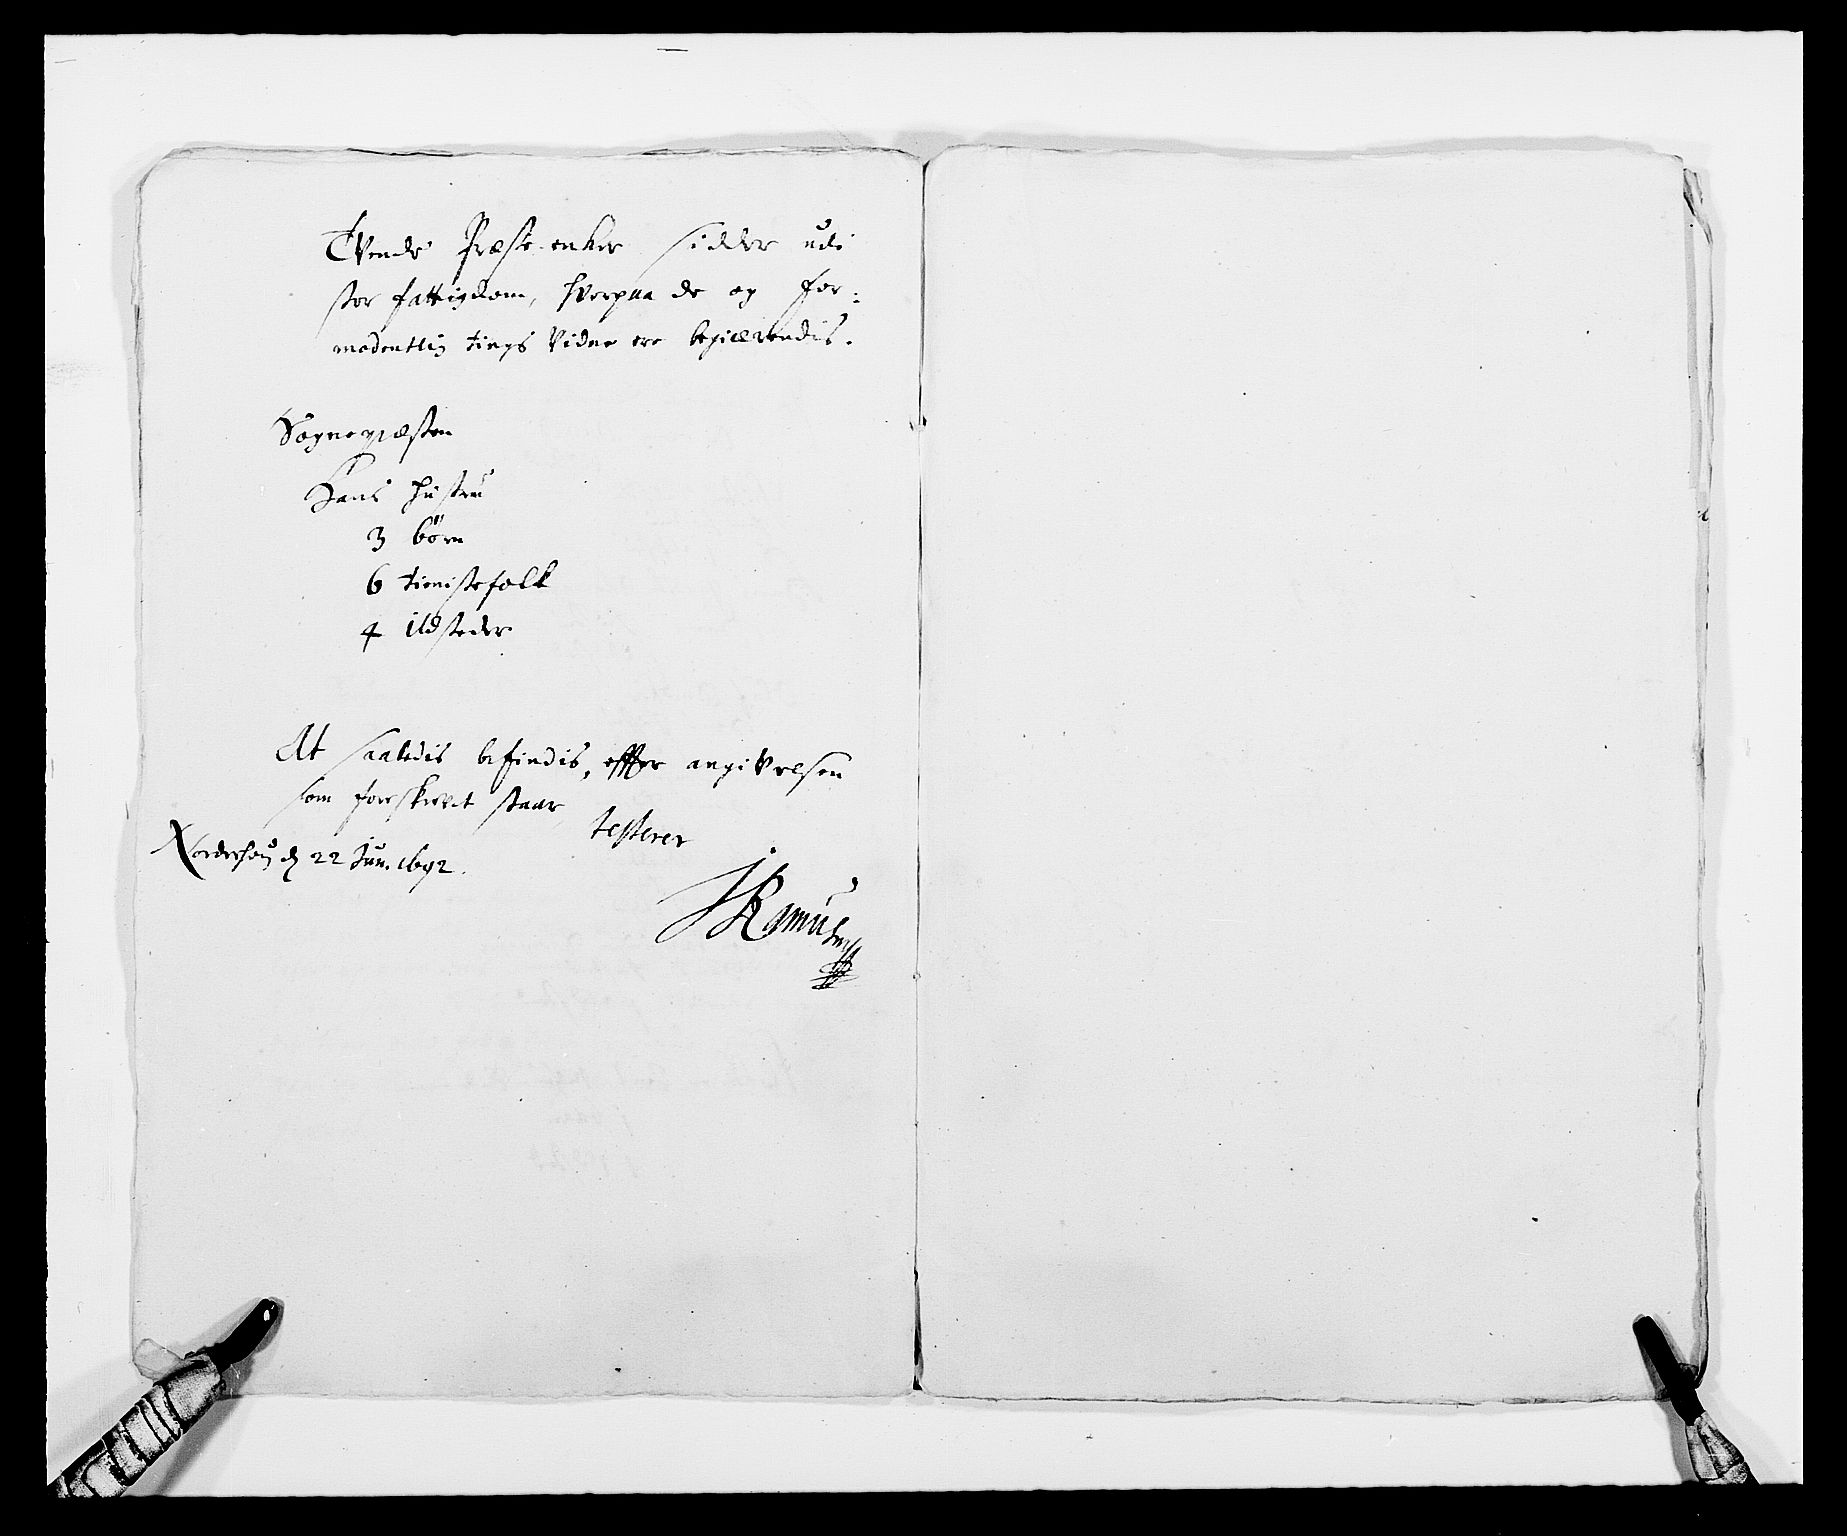 Tvende Præste-enker sidder udi
stor fattigdom, hvorpaa de og for:
modentlig tings vidne ere begiærendis.
Sognepræsten
Hans hustru
3 börn
6 tienistefolk
4 ildsteder
At saaledis befindis, effter angivelsen
som forskrevet staar,
testerer
Norderhoug d 22 Jun. 1692.
JRamus